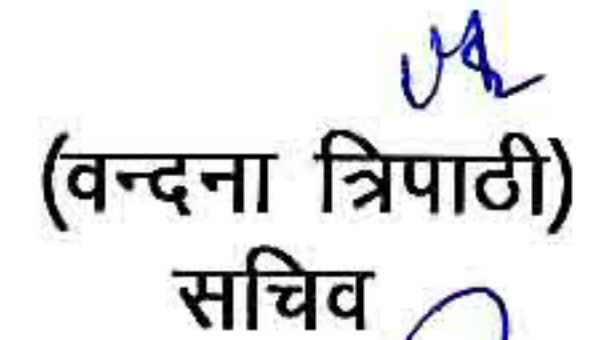 (वन्दना त्रिपाठी)
सचिव